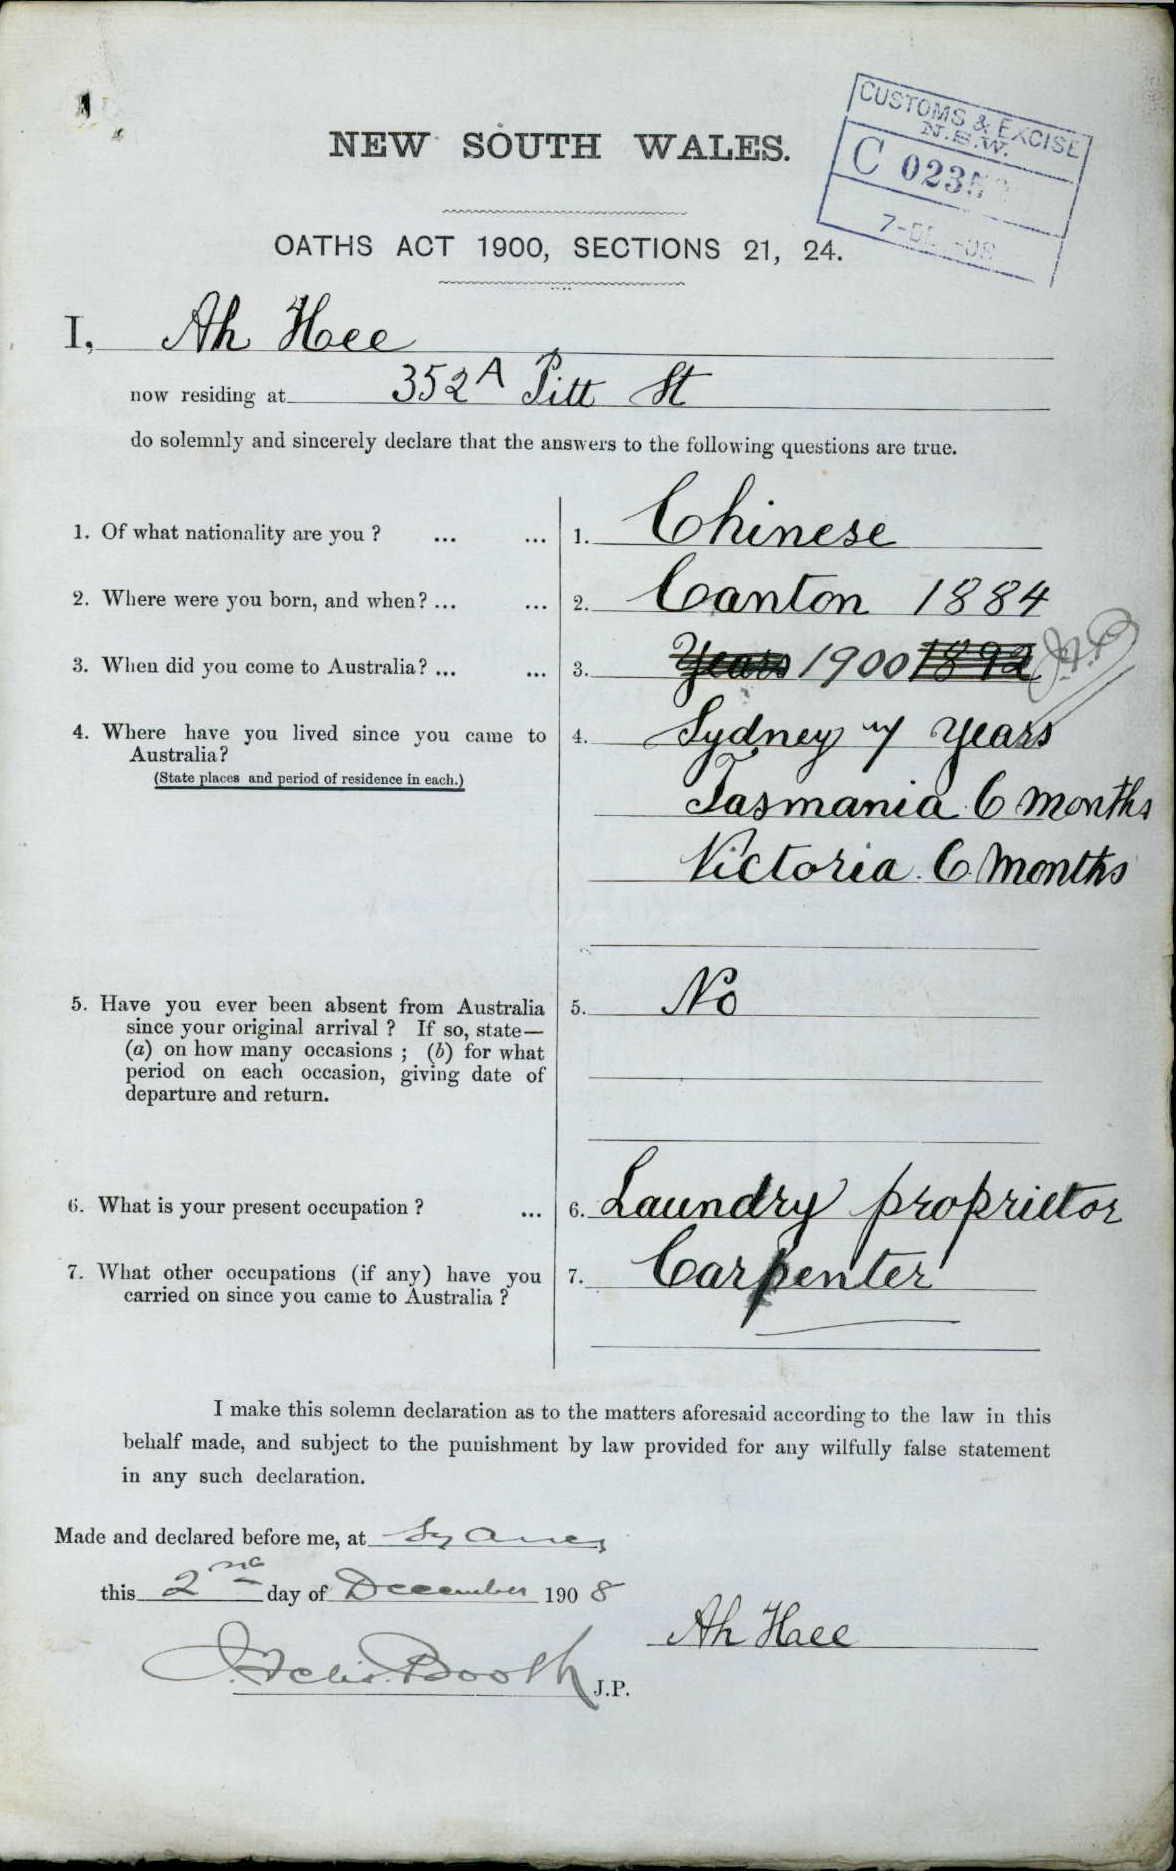 CUSTOMS & EXCISE
N.S.W.
C 023
7-
NEW SOUTH WALES.
OATHS ACT 1900, SECTIONS 21, 24.
I, Ah Hee
now residing at 352A Pitt St
do solemnly and sincerely declare that the answers to the following questions are true.
1. Of what nationality are you ? ... ... 1. Chinese
2. Where were you born, and when? ... ... 2. Canton 1884
3. When did you come to Australia? ... ... 3. Years 1900 1892
4. Where have you lived since you came to 4. Sydney 7 years
Australia?
(State places and period of residence in each.)
Tasmania 6 months
Victoria. 6 Months
5. Have you ever been absent from Australia 5. No
since your original arrival ? If so, state—
(a) on how many occasions ; (b) for what
period on each occasion, giving date of
departure and return.
6. What is your present occupation ? ... 6. Laundry proprietor
7. What other occupations (if any) have you 7. Carpenter
carried on since you came to Australia ?
I make this solemn declaration as to the matters aforesaid according to the law in this
behalf made, and subject to the punishment by law provided for any wilfully false statement
in any such declaration.
Made and declared before me, at Sydney
this 2nd day of December 1908
Ah Hee
Booth J.P.